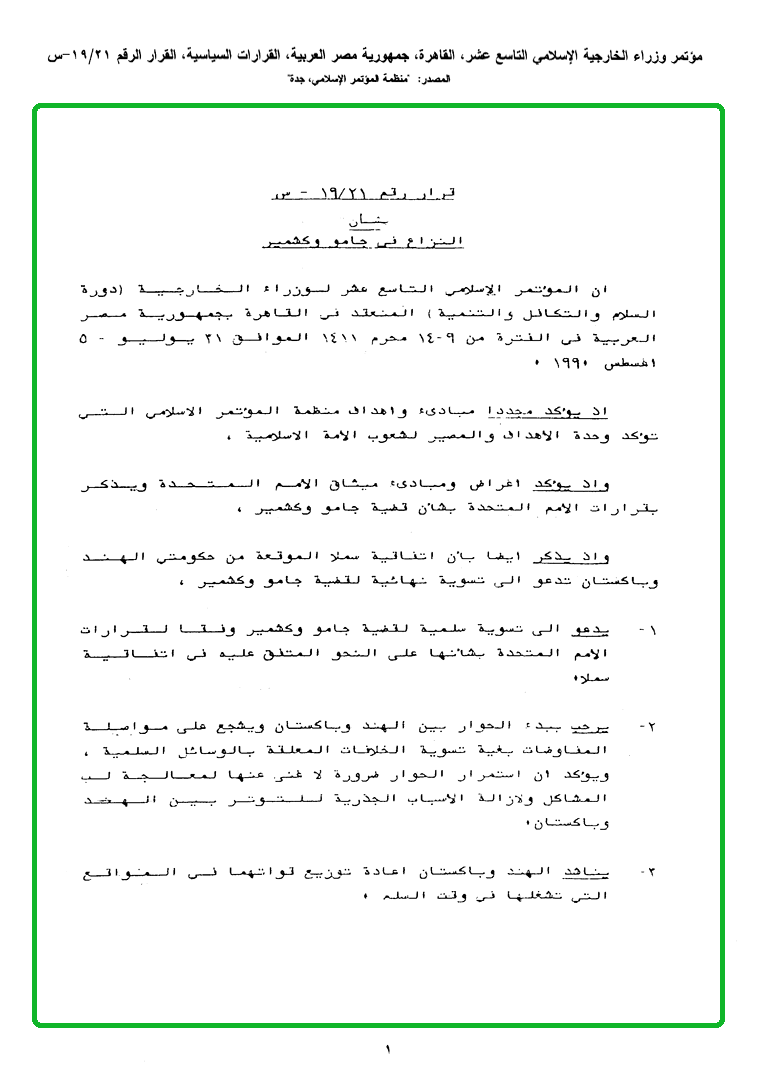 مؤتمر وزراء الخارجية الإسلامي التاسع عشر، القاهرة، جمهورية مصر العربية، القرارات السياسية، القرار الرقم ١٩/٢١-س
المصدر: "منظمة المؤتمر الإسلامي، جدة"
قرار رقم ١٩/٢١ - س
بشأن
النزاع في جامو وكشمير
ان المؤتمر الإسلامي التاسع عشر لوزراء الخارجية (دورة
السلام والتكافل والتنمية) المنعقد في القاهرة بجمهورية مصر
العربية في الفترة من ٩-١٤ محرم ١٤١١ الموافق ٣١ يوليو - ٥
اغسطس ١٩٩٠ ،
اذ يؤكد مجددا مبادىء واهداف منظمة المؤتمر الاسلامي التي
تؤكد وحدة الاهداف والمصير لشعوب الامة الاسلامية ،
واذ يؤكد اغراض ومبادىء ميثاق الامم المتحدة ويذكر
بقرارات الامم المتحدة بشان قضية جامو وكشمير ،
واذ يذكر ايضا بان اتفاقية سملا الموقعة من حكومتي الهند
وباكستان تدعو الى تسوية نهائية لقضية جامو وكشمير ،
١- يدعو الى تسوية سلمية لقضية جامو وكشمير وفقا لقرارات
الامم المتحدة بشانها على النحو المتفق عليه في اتفاقية
سملا.
٢- يرحب ببدء الحوار بين الهند وباكستان ويشجع على مواصلة
المفاوضات بغية تسوية الخلافات المعلقة بالوسائل السلمية ،
ويؤكد ان استمرار الحوار ضرورة لا غنى عنها لمعالجة لب
المشاكل ولازالة الاسباب الجذرية للتوتر بين الهند
وباكستان.
٣- يناشد الهند وباكستان اعادة توزيع قواتهما في المواقع
التي تشغلها في وقت السلم .
١